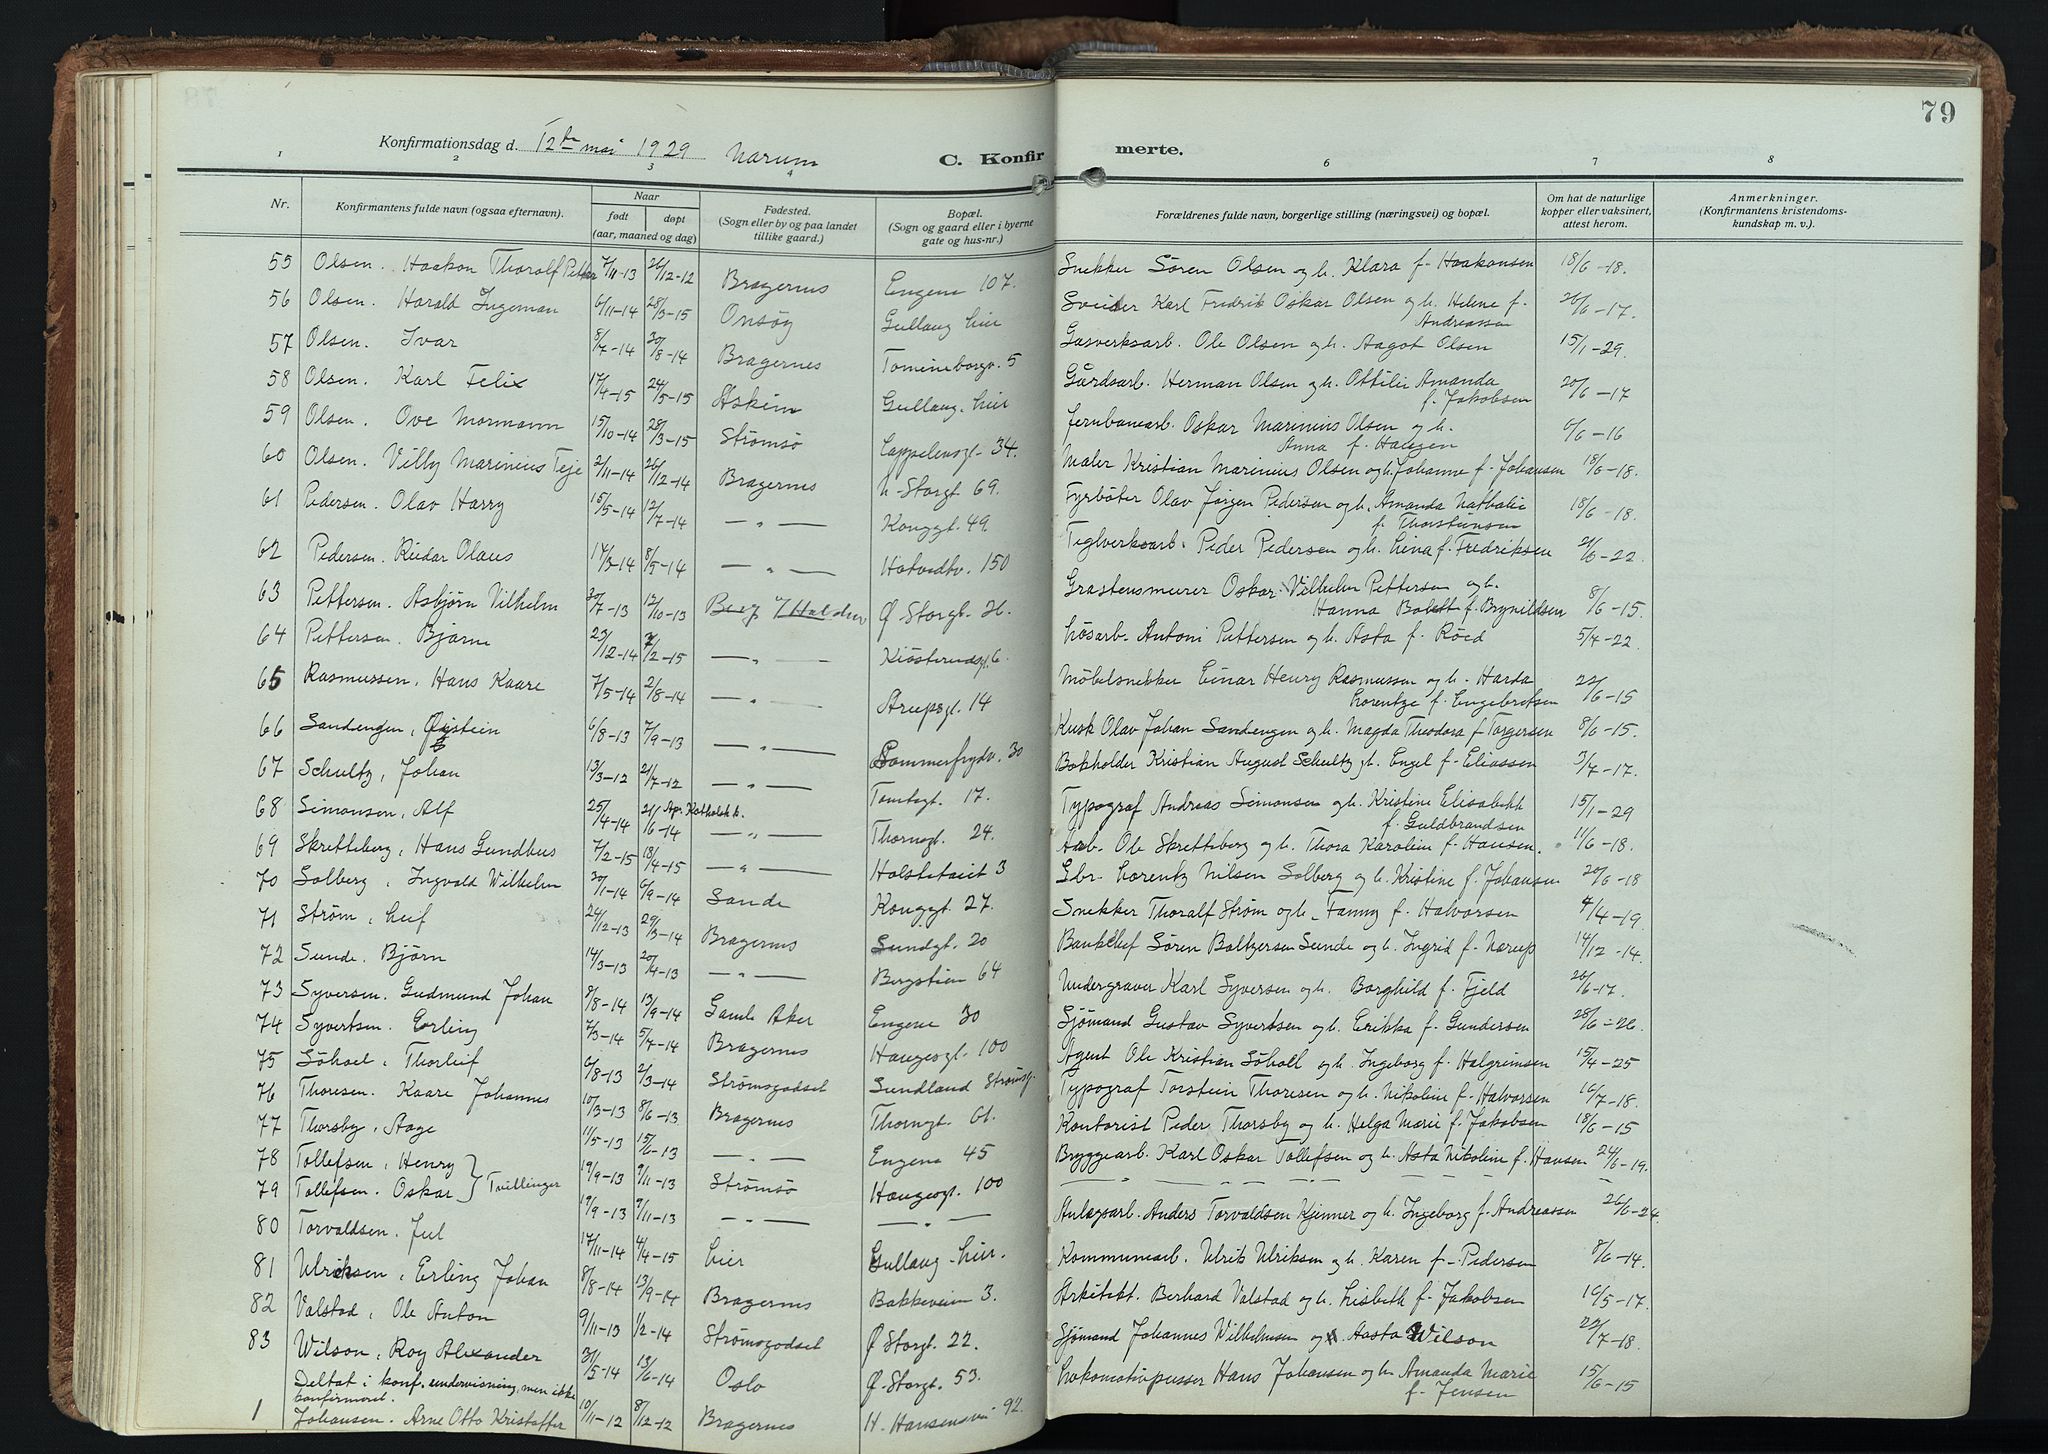 79
Konfirmationsdag d. 12te mai 1929 Narum C. Konfirmerte.
1 2 3 4 6 7 8
Nr. Konfirmantens fulde navn (ogsaa efternavn). Naar født døpt (aar, maaned og dag) Fødested. (Sogn eller by og paa landet tillike gaard.) Bopæl. (Sogn og gaard eller i byerne gate og hus-nr.) Forældrenes fulde navn, borgerlige stilling (næringsvei) og bopæl. Om hat de naturlige kopper eller vaksinert, attest herom. Anmerkninger. (Konfirmantens kristendomskundskap m. v.).
55 Olsen. Haakon Thoralf Petter 7/11-13 26/12-12 Bragernes Engene 107. Snekker Sören Olsen og h. Klara f. Haakonsen 18/6-18.
56 Olsen. Harald Ingeman 6/11-14 28/3-15 Onsøy Gullaug Lier Sveiser Karl Fredrik Oskar Olsen og h. Helene f. Andreassen 26/6-17.
57 Olsen. Ivar 8/7-14 30/8-14 Bragernes Tomineborgv. 5 Gasverksarb. Ole Olsen og h. Aagot Olsen 15/1-29.
58 Olsen. Karl Felix 17/4-15 24/5-15 Askim Gullaug. Lier Gårdsarb. Herman Olsen og h. Ottilie Amanda f. Jakobsen 20/6-17
59 Olsen. Ove Mormann 15/10-14 28/3-15 Strømsø Cappelensgt. 34. Jernbanearb. Oskar Marinius Olsen og h. Anna f. Haugen 6/6-16
60 Olsen. Villy Marinius Teje 2/11-14 26/12-14 Bragernes N. Storgt. 69. Maler Kristian Marinius Olsen og h. Johanne f. Johansen 18/6-18.
61 Pedersen. Olav Harry 15/5-14 12/7-14 — " — Konggt. 49. Fyrböter Olav Jørgen Pedersen og h. Amanda Nathalie f. Thorsteinsen 18/6-18.
62 Pedersen. Reidar Olaus 14/3-14 8/5-14 — " — Hotvedtv. 150 Teglverksarb. Peder Pedersen og h. Lina f. Fredriksen 21/6-22.
63 Pettersen. Asbjörn Vilhelm 20/7-13 12/10-13 Berg v/Halden Ø. Storgt. 26. Grastensmurer Oskar Vilhelm Pettersen og h. Hanna Bolett f. Brynildsen 8/6-15.
64 Pettersen. Bjarne 23/12-14 7/2-15 — " — Kiösterudsgt. 6. Løsarb. Antoni Pettersen og h. Asta f. Röed 5/4-22.
65 Rasmussen. Hans Kaare 7/5-14 2/8-14 — " — Arupsgt. 14 Möbelsnekker Einar Henry Rasmussen og h. Harda Lorentze f. Engebretsen 22/6-15
66 Sandengen, Øystein 6/8-13 7/9-13 — " — Sommerfrydv. 30 Kusk Olav Johan Sandengen og h. Magda Theodora f. Torgersen 8/6-15.
67 Schultz, Johan 13/3-12 21/7-12 — " — Tomtegt. 17. Bokholder Kristian August Schultz og h. Engel f. Eliassen 3/7-17.
68 Simonsen, Alf 25/4-14 21/6-14 Ap. Katholsk k. — " — Thornegt. 24. Typograf Andreas Simonsen og h. Kristine Elisabeth f. Guldbrandsen 15/1-29
69 Skretteberg, Hans Gundhus 7/2-15 18/4-15 — " — Holstetaiet 3 Arb. Ole Skretteberg og h. Thora Karoline f. Hansen. 11/6-18.
70 Solberg, Ingvald Wilhelm 20/1-14 6/9-14 Sande Konggt. 27. Gbr. Lorentz Nilsen Solberg og h. Kristine f. Johansen 20/6-18
71 Strøm, Leif 24/12-13 29/3-14 Bragernes Sundgt. 20 Snekker Thoralf Strøm og h. Fanny f. Halvorsen 4/4-19.
72 Sunde. Bjørn 14/3-13 20/4-13 — " — Bergstien 64 Bankchef Søren Baltzersen Sunde og h. Ingrid f. Narup 14/12-14.
73 Syversen. Gudmund Johan 8/8-14 13/9-14 Gamle Aker Engene 30 Undergraver Karl Syversen og h. Borghild f. Fjeld 26/6-17.
74 Syvertsen. Erling 7/3-14 5/7-14 Bragernes Haugesgt. 100 Sjömand Gustav Syvertsen og h. Erikka f. Gundersen 28/6-26.
75 Söholt, Thorleif 6/8-13 2/3-14 Strømsgodset Sundland Strømsg. Agent Ole Kristian Söholt og h. Ingeborg f. Halgrimsen 15/4-25
76 Thoresen. Kaare Johannes 10/3-13 8/6-13 Bragernes Thornegt. 61. Typograf Torstein Thoresen og h. Nikoline f. Halvorsen 16/7-18.
77 Thorsby, Aage 11/5-13 15/6-13 — " — Engene 45 Kontorist Peder Thorsby og h. Helga Marie f. Jakobsen 18/6-15
78 Tollefsen, Henry } Tvillinger 19/9-13 9/11-13 Strømsø Haugesgt. 100 Bryggearb. Karl Oskar Tollefsen og h. Asta Nikoline f. Hansen 24/6-19.
79 Tollefsen. Oskar 19/9-13 9/11-13 — " — — " — — " —
80 Torvaldsen. Jul 17/11-14 4/4-15 Lier Gullaug. Lier. Anlægsarb. Anders Torvaldsen Kjenner og h. Ingeborg f. Andreassen 26/6-24.
81 Ulriksen, Erling Johan 8/8-14 13/9-14 Bragernes Bakkeveien 3. Kommunearb. Ulrik Ulriksen og h. Karen f. Pedersen 8/6-14.
82 Valstad, Ole Anton 9/11-13 1/2-14 Strømsgodset Ø. Storgt. 22. Arkitekt. Berhard Valstad og h. Lisbeth f. Jakobsen 16/5-17.
83 Wilson, Roy Alexander 31/5-14 13/6-14 Oslo Ø. Storgt. 53. Sjømand Johannes Wilhelmsen og Aasta Wilson 23/7-18.
Deltat i konf. undervisning, men ikke konfirmeret.
1 Johansen. Arne Otto Kristoffer 10/11-12 8/12-12 Bragernes H. Hansensvei 92. Lokomotivpusser Hans Johansen og h. Amanda Marie f. Jensen 15/6-15